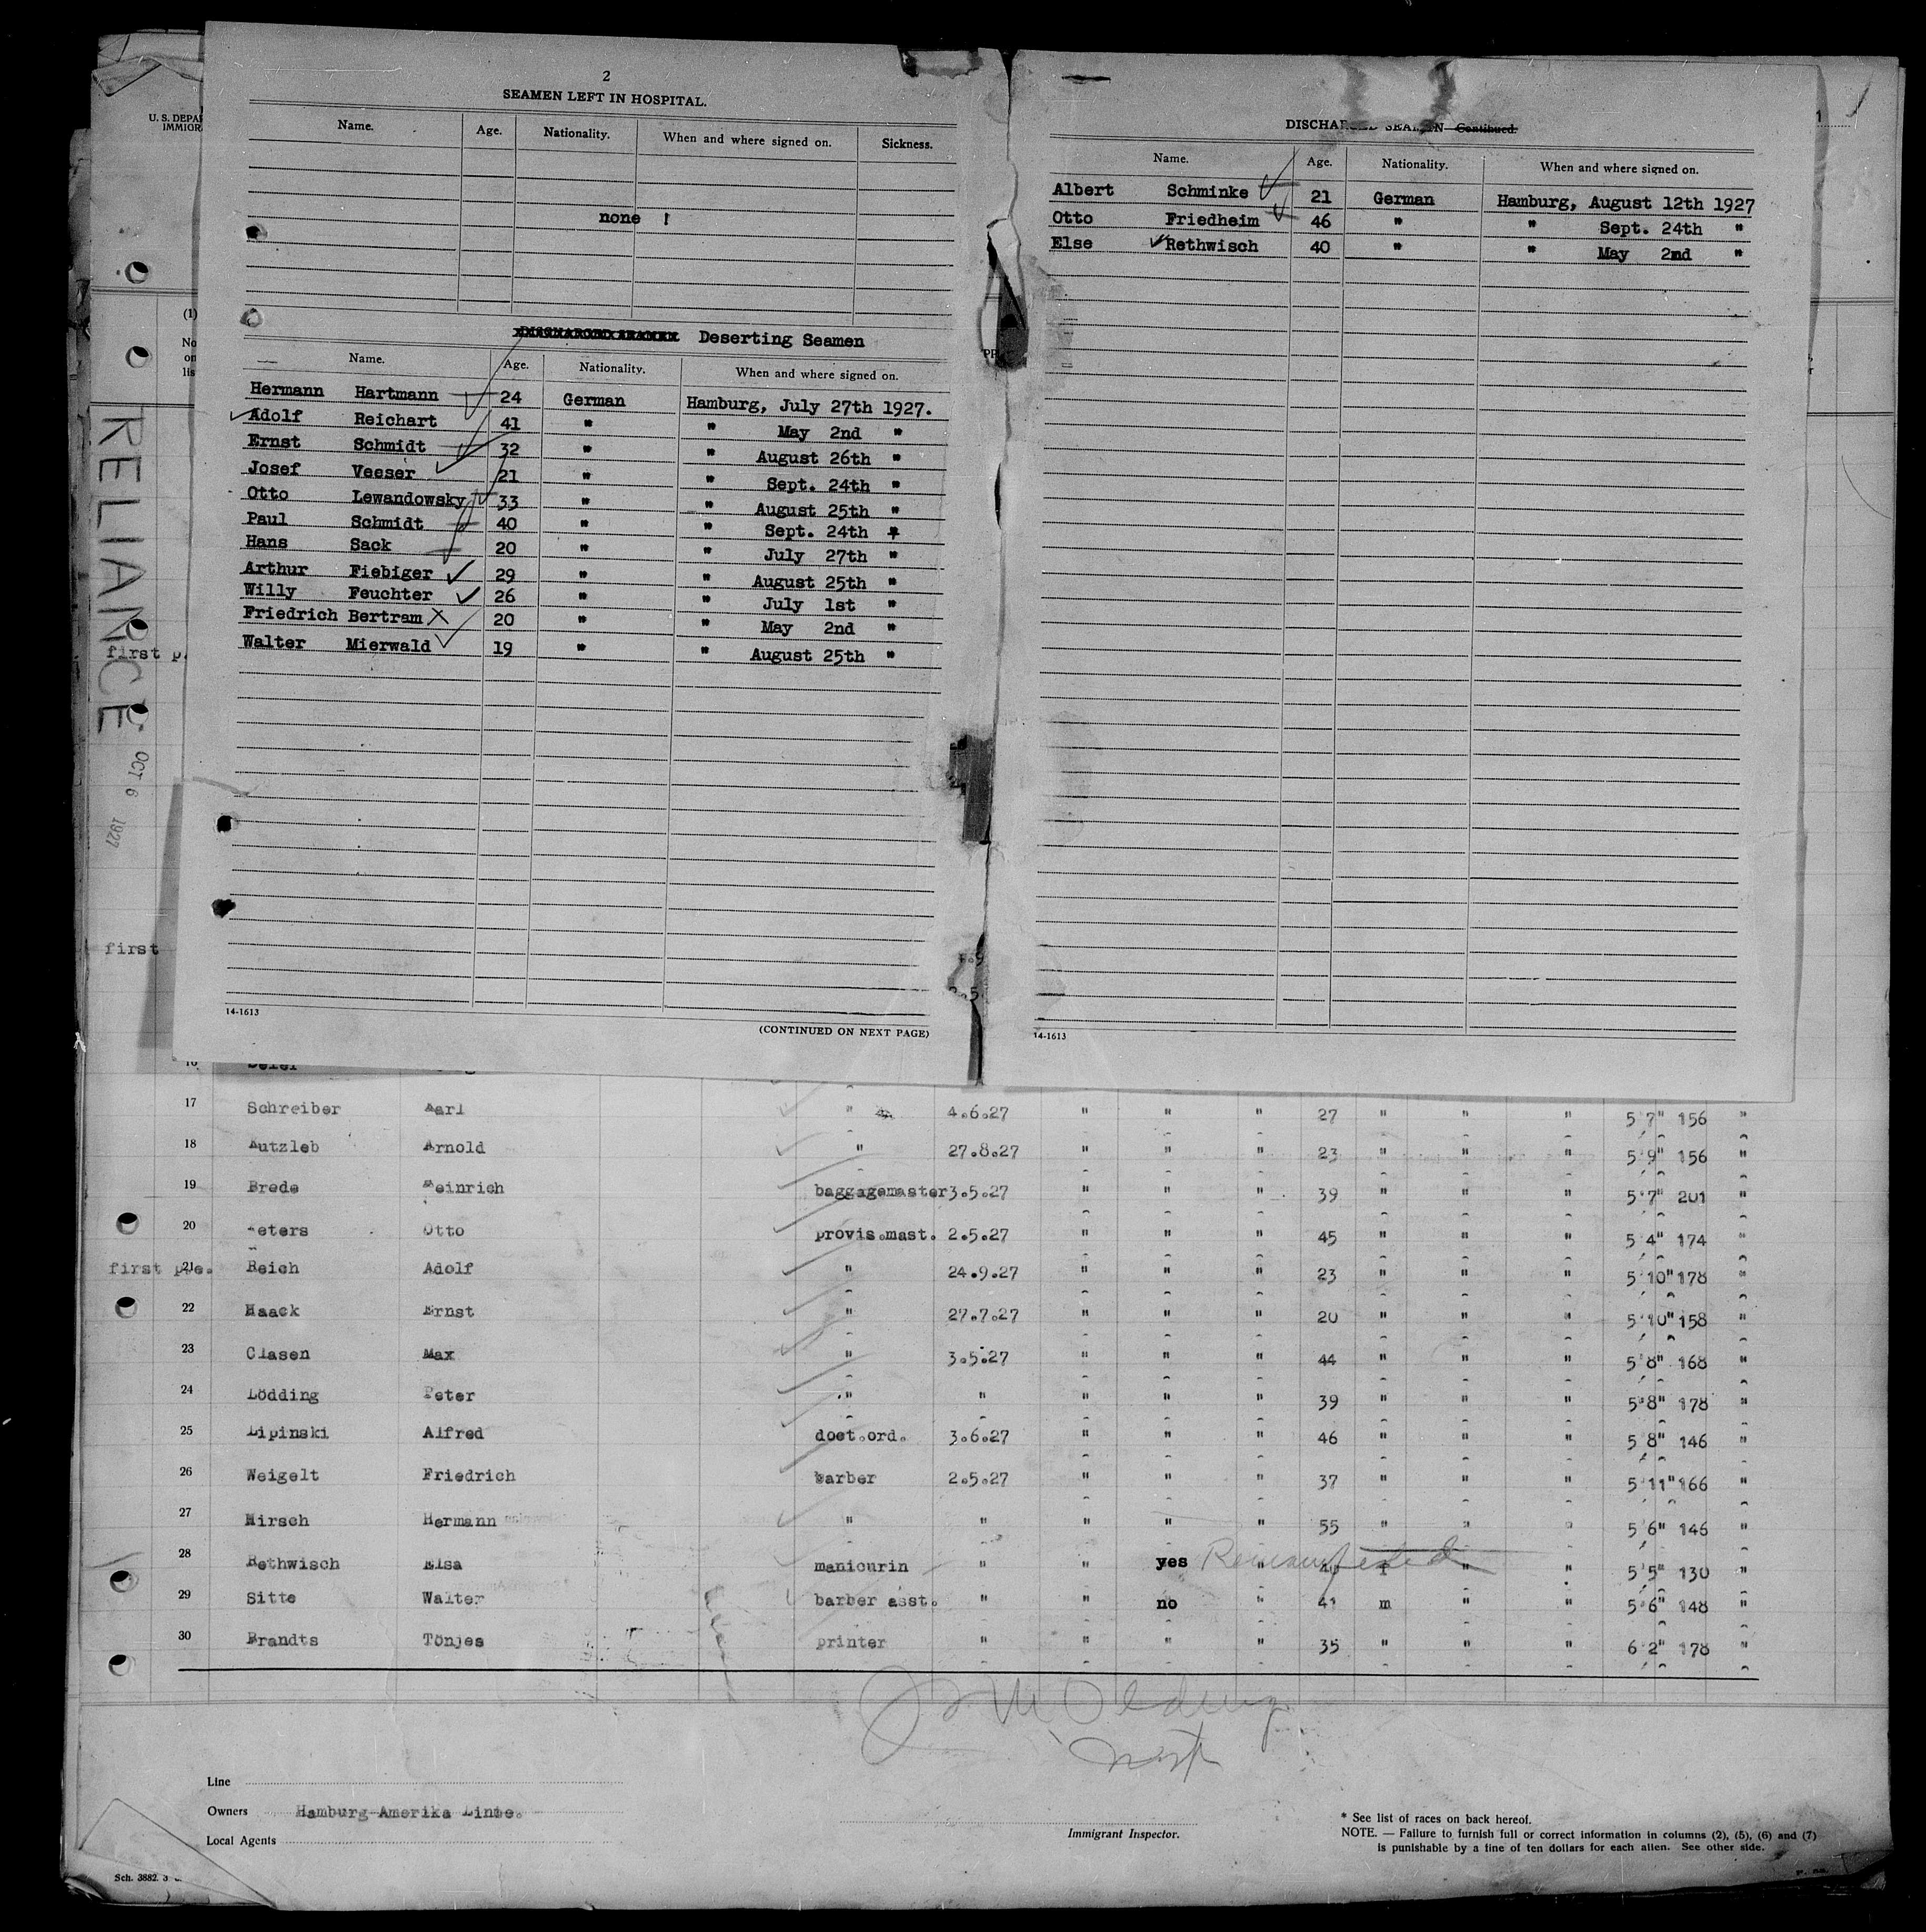 2
SEAMEN LEFT IN HOSPITAL.
Name. Age. Nationality. When and where signed on. Sickness.
none
DISCHARGED SEAMEN Deserting Seamen
Name. Age. Nationality. When and where signed on.
Hermann Hartmann 24 German Hamburg, July 27th 1927.
Adolf Reichart 41 " " May 2nd "
Ernst Schmidt 32 " " August 26th "
Josef Veeser 21 " " Sept. 24th "
Otto Lewandowsky 33 " " August 25th "
Paul Schmidt 40 " " Sept. 24th "
Hans Sack 20 " " July 27th "
Arthur Fiebiger 29 " " August 25th "
Willy Feuchter 26 " " July 1st "
Friedrich Bertram X 20 " " May 2nd "
Walter Mierwald 19 " " August 25th "
14-1613
(CONTINUED ON NEXT PAGE)
DISCHARGED SEAMEN Continued.
Name. Age. Nationality. When and where signed on.
Albert Schminke 21 German Hamburg, August 12th 1927
Otto Friedheim 46 " " Sept. 24th "
Else Rethwisch 40 " " May 2nd "
14-1613
1
U. S. DEPAR
IMMIGRA
(1)
No
on
lis
RELIANCE
OCT 6 1927
first p.
first
17 Schreiber Karl " 4.6.27 " " " 27 " " " 5'7" 156 "
18 Autzleb Arnold " 27.8.27 " " " 23 " " " 5'9" 156 "
19 Brede Heinrich baggagemaster 3.5.27 " " " 39 " " " 5'7" 201 "
20 Peters Otto provis.mast. 2.5.27 " " " 45 " " " 5'4" 174 "
first p.e. 21 Reich Adolf " 24.9.27 " " " 23 " " " 5'10" 178 "
22 Haack Ernst " 27.7.27 " " " 20 " " " 5'10" 158 "
23 Clasen Max " 3.5.27 " " " 44 " " " 5'8" 168 "
24 Lödding Peter " " " " " 39 " " " 5'8" 178 "
25 Lipinski Alfred doct.ord. 3.6.27 " " " 46 " " " 5'8" 146 "
26 Weigelt Friedrich barber 2.5.27 " " " 37 " " " 5'11" 166 "
27 Hirsch Hermann " " " " " 55 " " " 5'6" 146 "
28 Rethwisch Elsa manicurin " " yes Remanifested " 40 f " " 5'5" 130 "
29 Sitte Walter barber asst. " " no " 41 m " " 5'6" 148 "
30 Brandts Tönjes printer " " " " 35 " " " 6'2" 178 "
Line
Owners Hamburg-Amerika Linie.
Local Agents
Immigrant Inspector.
* See list of races on back hereof.
NOTE. — Failure to furnish full or correct information in columns (2), (5), (6) and (7)
is punishable by a fine of ten dollars for each alien. See other side.
Sch. 3882.